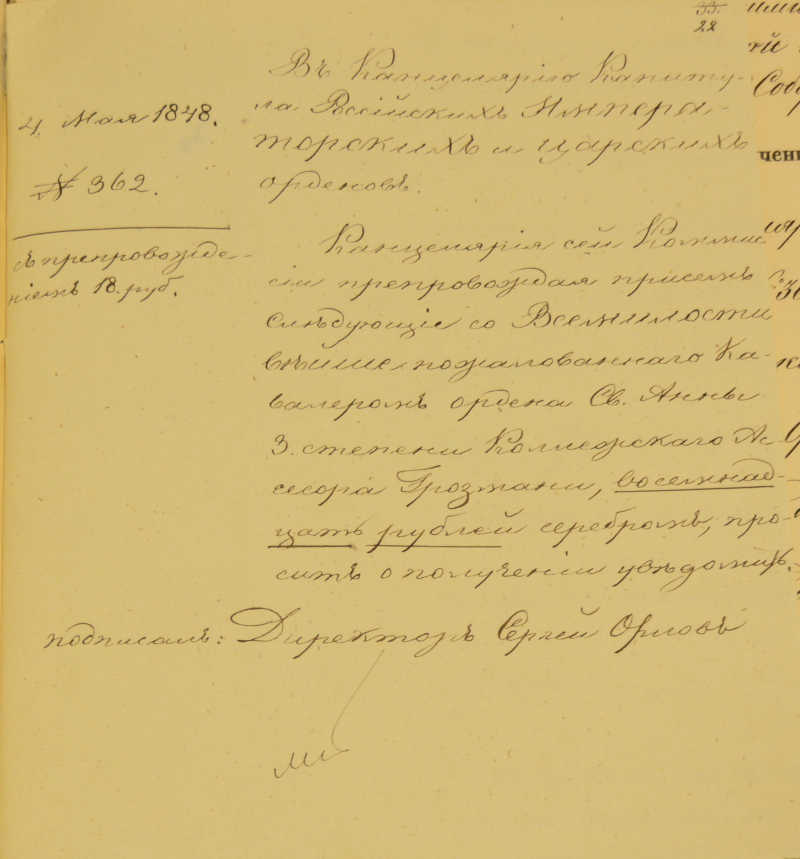 22
Въ Канцелярію Капиту-
ла Россійскихъ Импера-
торскихъ и царскихъ
орденовъ.
4. Мая 1848.
№ 362.
съ препровожде-
ніемъ 18. руб.
Канцелярія сей Коммис
сіи препровождая присемъ
слѣдующіе со Всемилости
вѣйше пожалованнаго Ка-
валеромъ ордена Св. Анны
3. степени Коллежскаго Ас
сесора Грозмани, восемнад-
цать рублей серебромъ, про-
ситъ о полученіи увѣдомить.
подписалъ: Директоръ Сергей Орловъ